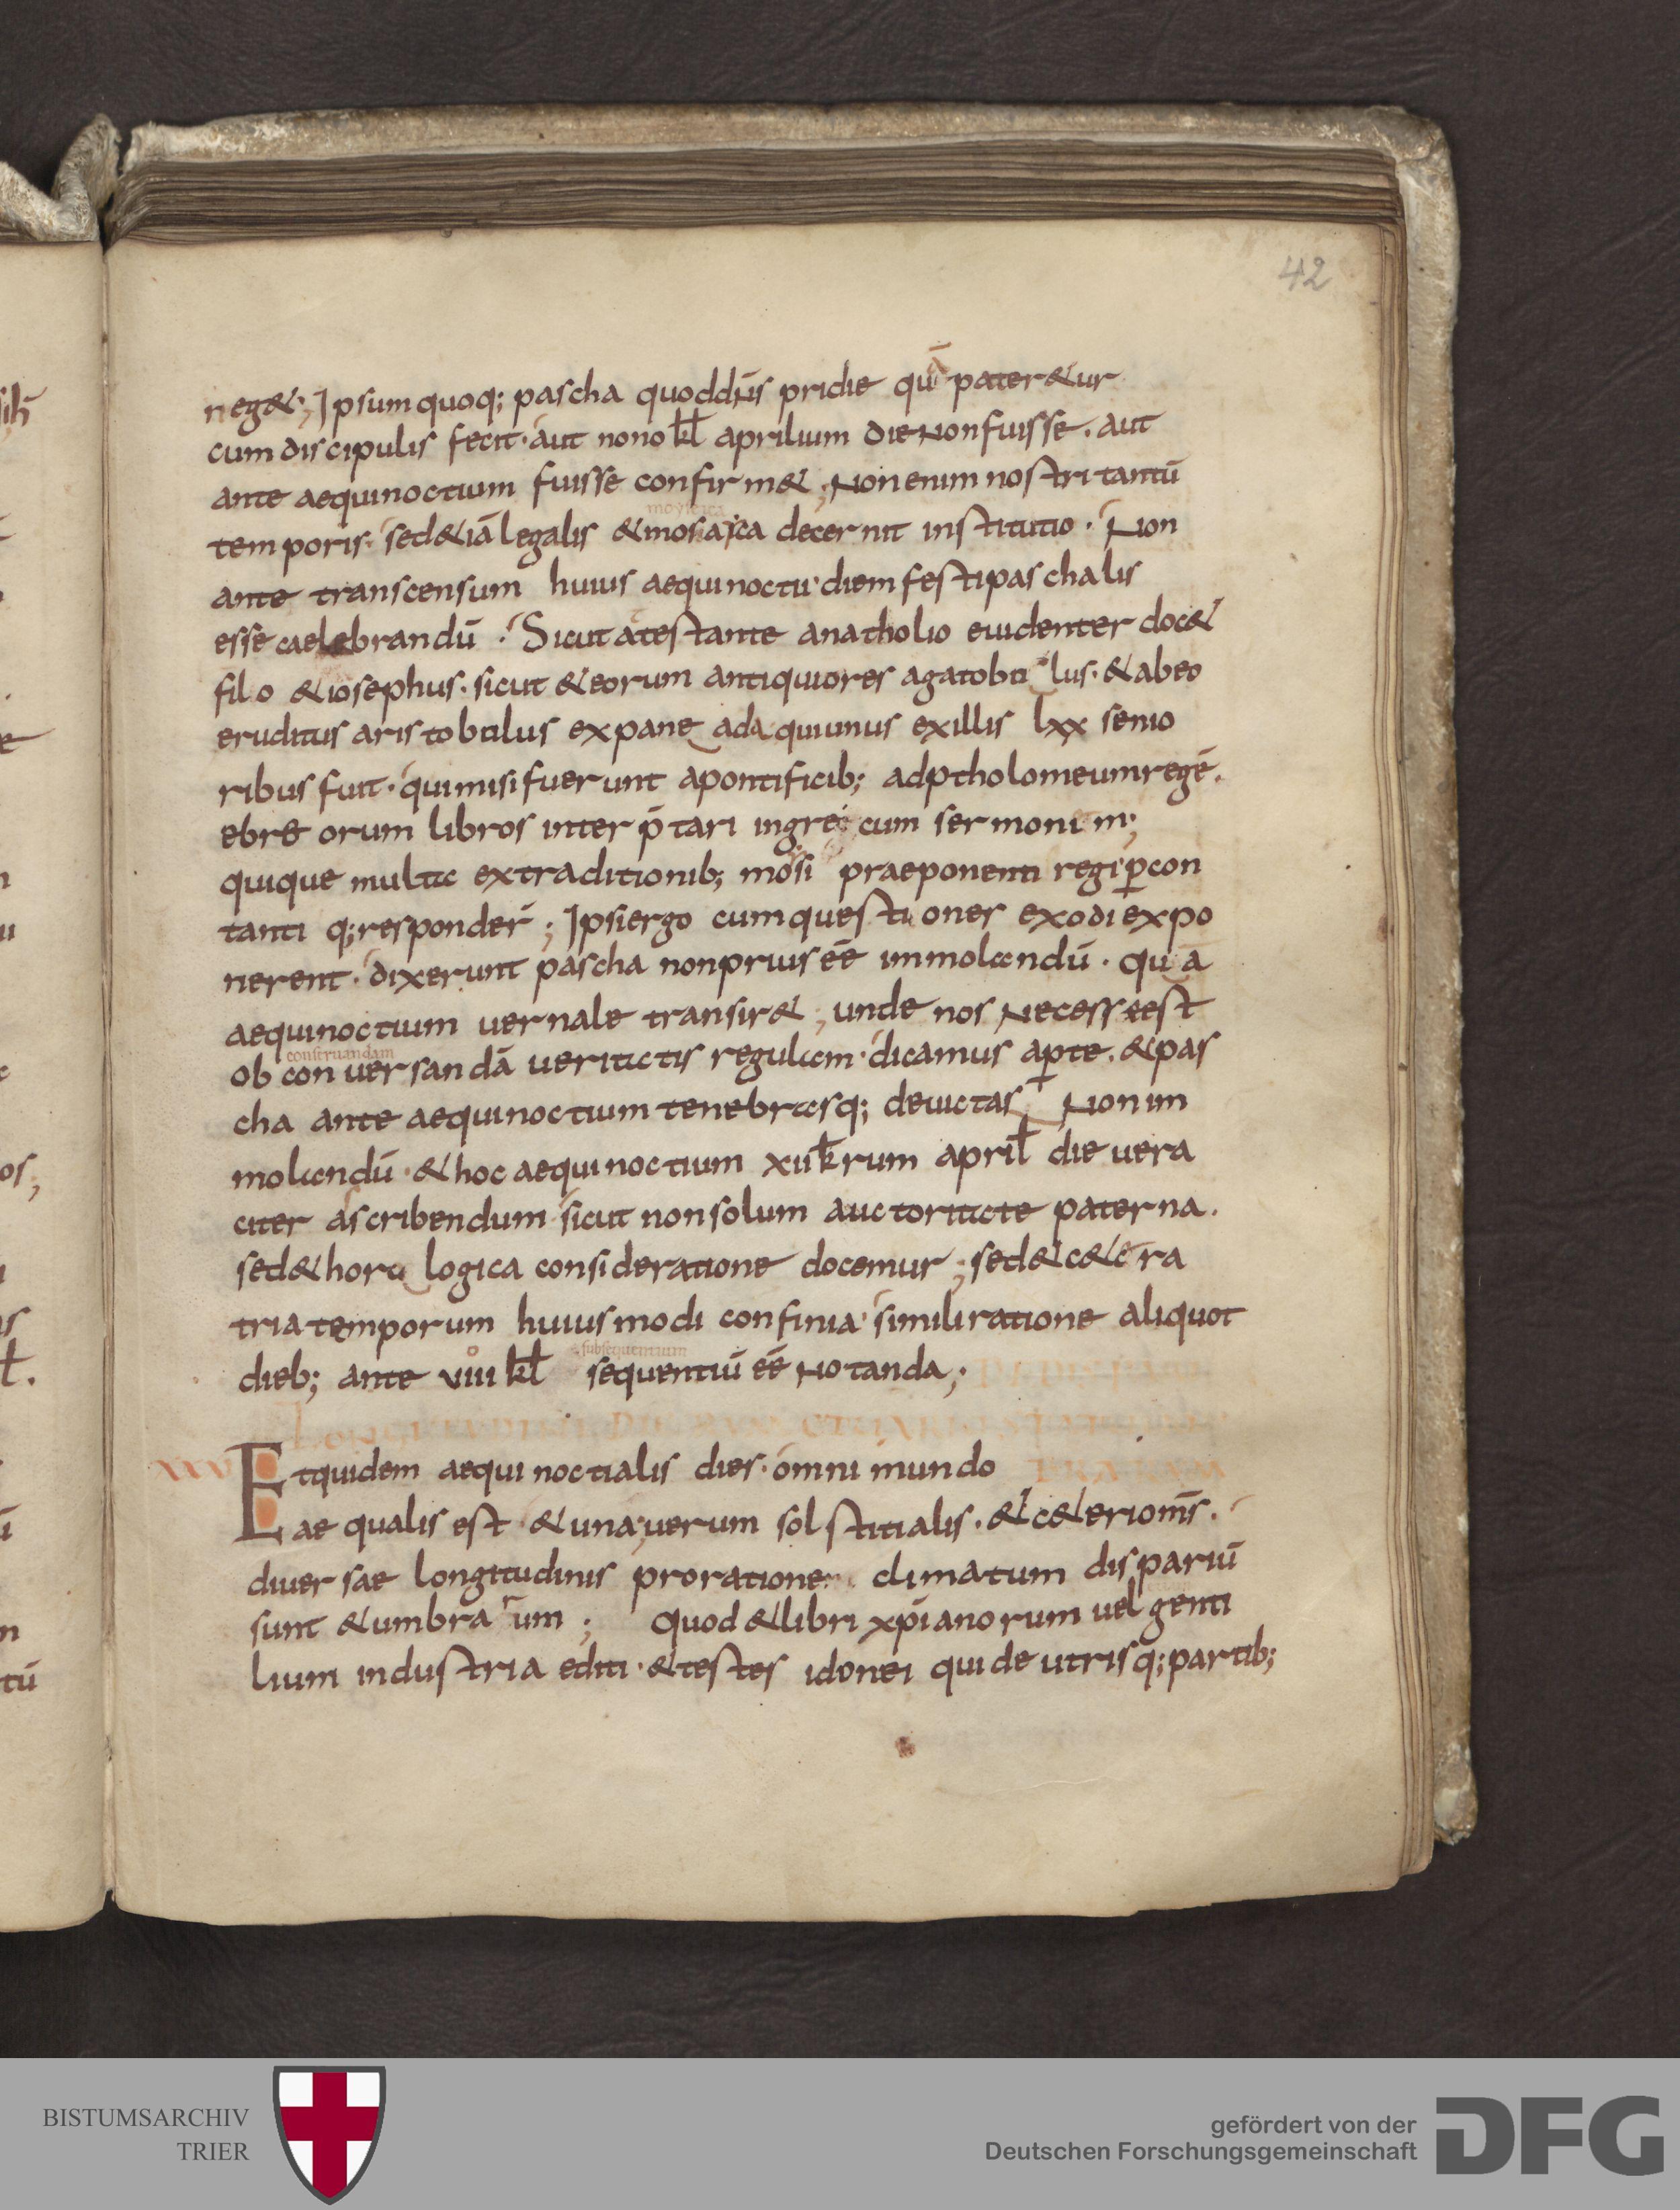 42
neg&; Ipsum quoq; pascha quod dn̄s pridie quā pater&ur
cum discipulis fecit · aut nono kł aprilium die non fuisse · aut
ante aequinoctium fuisse confirm&; Non enim nostri tantū
temporis · sed &iā legalis & mosaica decernit institutio · Non
ante transcensum huius aequinoctii diem festi paschalis
esse caelebrandū · Sicut atestante anatholio euidenter doc&
filo & iosephus · sicut & eorum antiquiores agatobulus · & ab eo
eruditus aristobulus ex paneada qui unus ex illis lxx senio
ribus fuit · qui misi fuerunt a pontificib; ad ptholomeum regē ·
ebreorum libros interp̄tari in grecum sermonem;
quique multa ex traditionib; mosi praeponenti regi ꝑcon
tantiq; responder̄; Ipsi ergo cum questiones exodi expo
nerent · dixerunt pascha non prius eē immolandū · quā
aequinoctium uernale transir&; unde nos necesse est
construandam
ob conuersandā ueritatis regulam · dicamus aꝑte · & pas
cha ante aequinoctium tenebrasq; deuictas Non im
molandū · & hoc aequinoctium xii krum april die uera
citer ascribendum · sicut non solum auctoritate paterna ·
sed & horologica consideratione docemur; sed & c&era
tria temporum huiusmodi confinia · simili ratione aliquot
subsequentium
dieb; ante viii kł sequentiū eē notanda;
XXV
Et quidem aequinoctialis dies · omni mundo
aequalis est & una; uerum solstitialis · & c&eri om̄s ·
diuersae longitudinis pro ratione climatum dispariū
sunt & umbrarum; quod & libri xp̄ianorum uel genti
lium industria editi · & testes idonei qui de utrisq; partib;
BISTUMSARCHIV
TRIER
gefördert von der
Deutschen Forschungsgemeinschaft
DFG